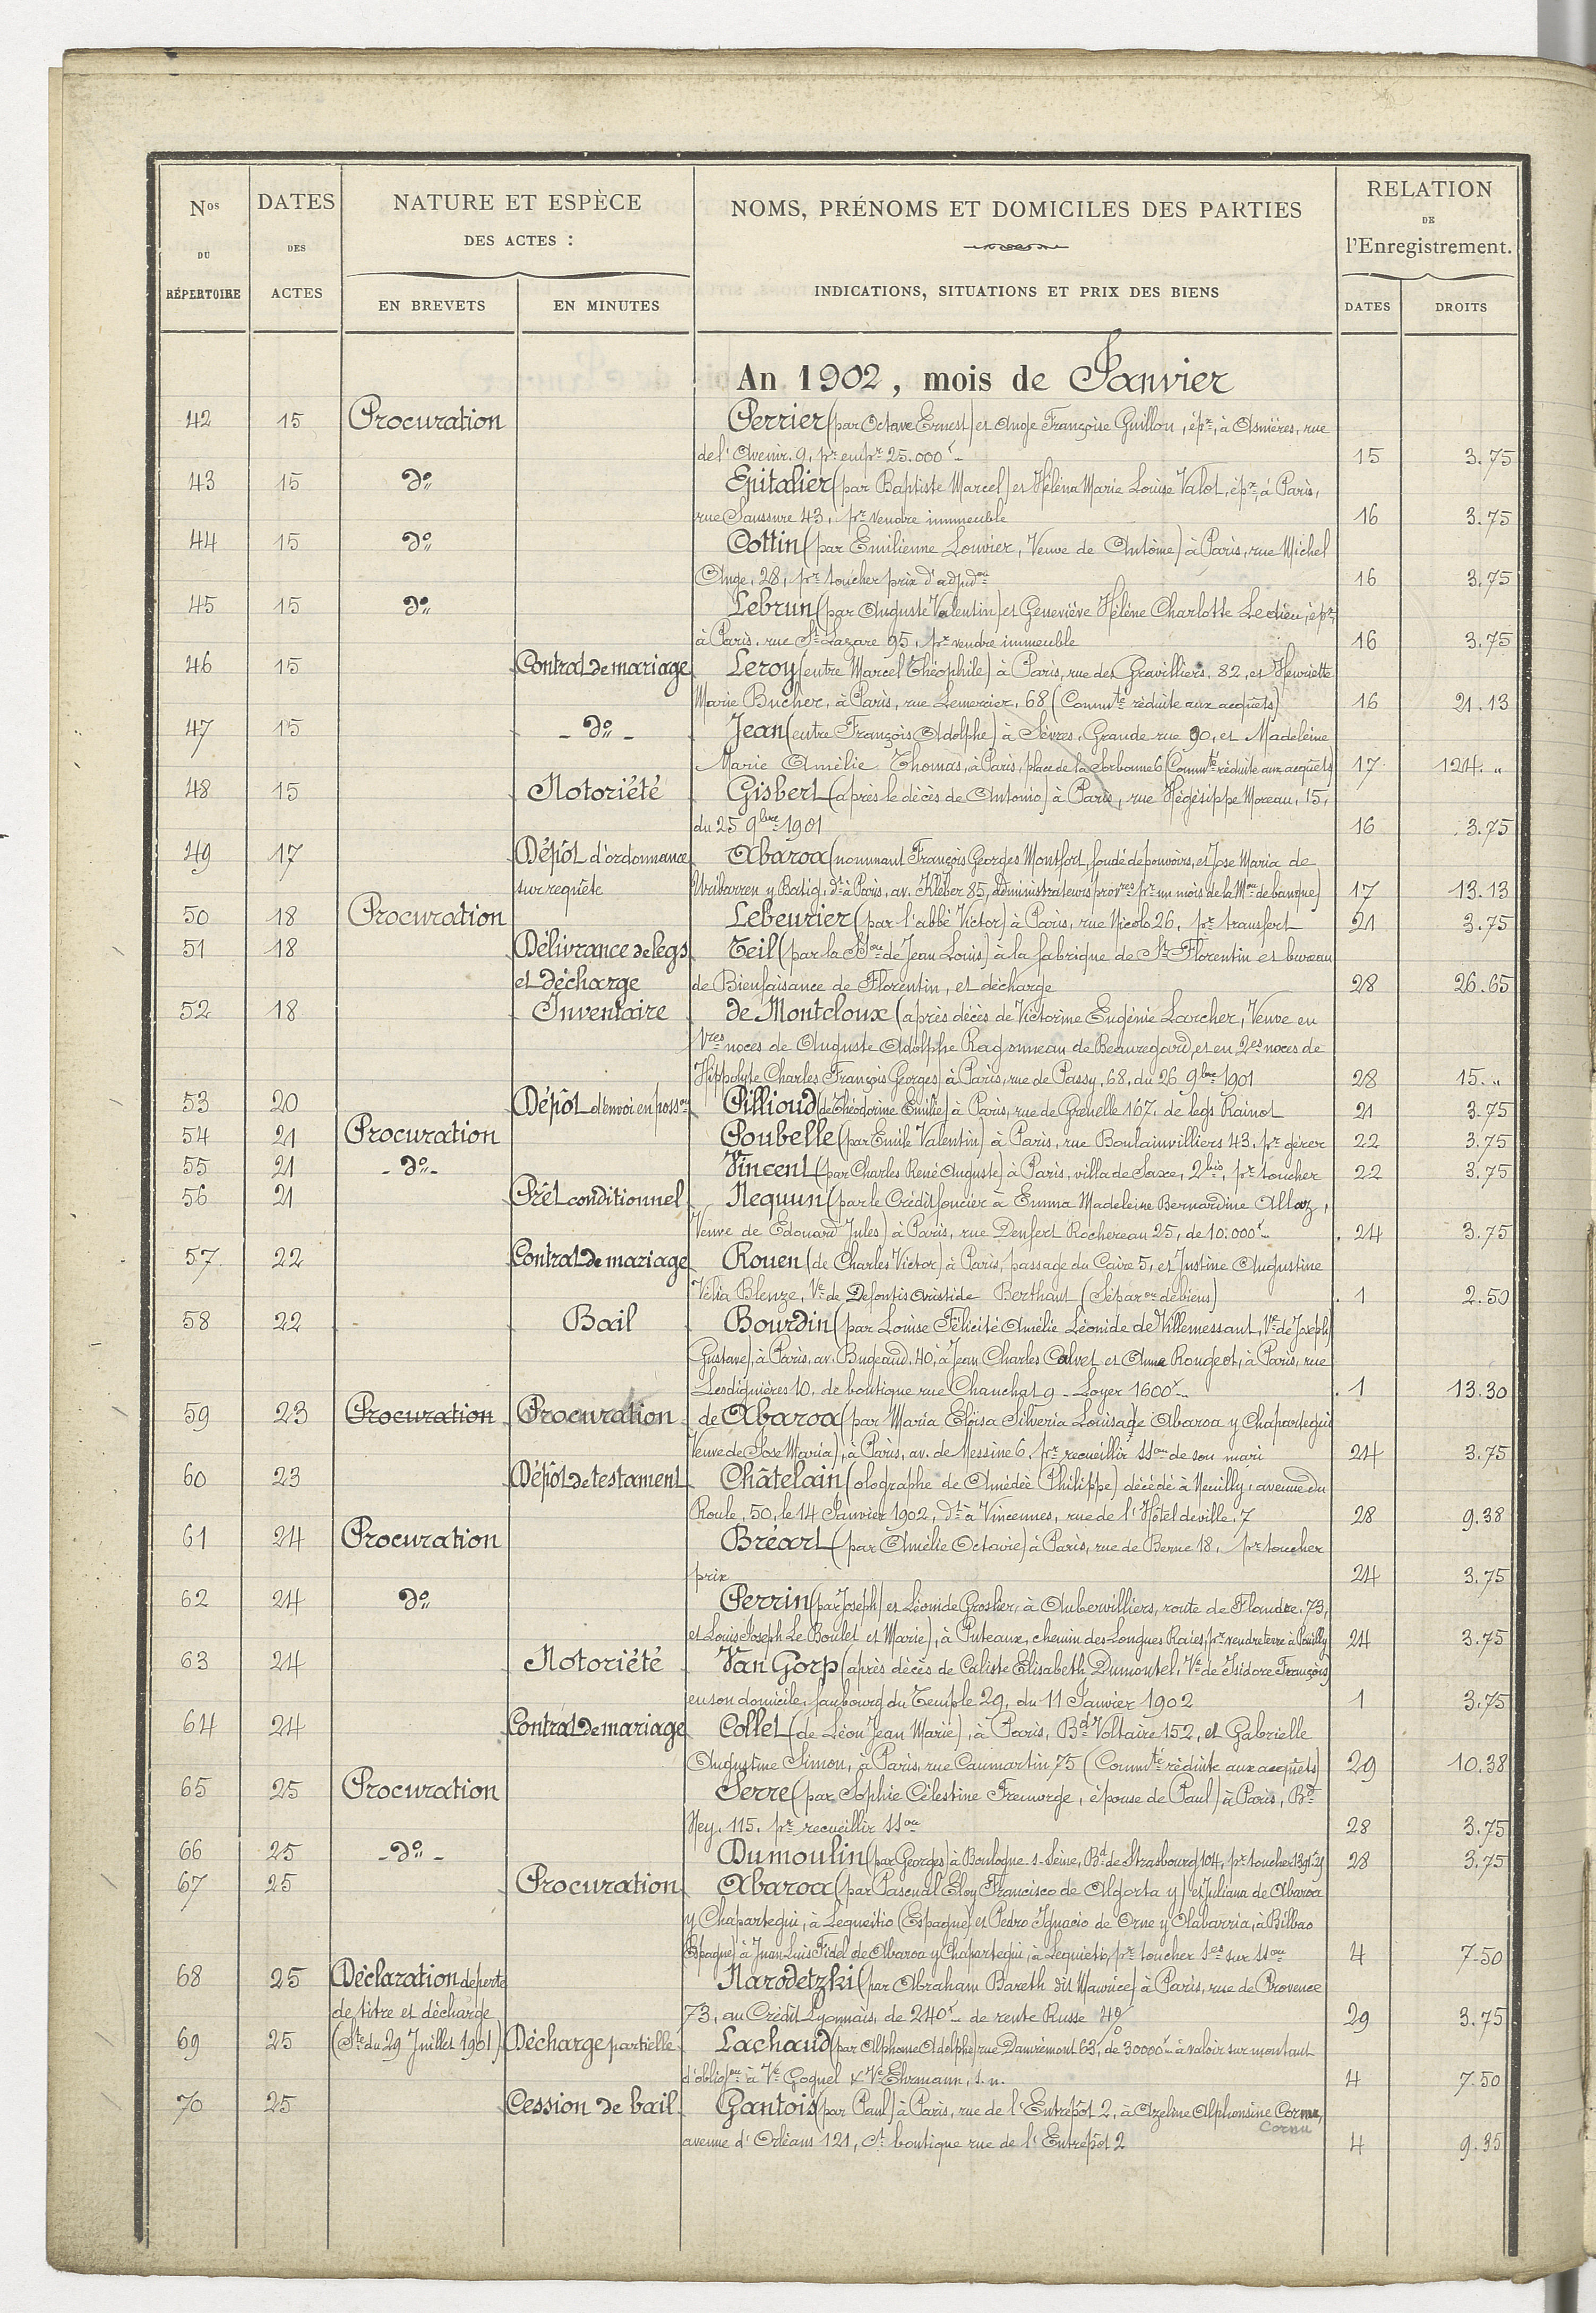 Nos DU RÉPERTOIRE
DATES DES ACTES
NATURE ET ESPÈCE
DES ACTES :
EN BREVETS
EN MINUTES
NOMS, PRÉNOMS ET DOMICILES DES PARTIES
INDICATIONS, SITUATIONS ET PRIX DES BIENS
RELATION
DE
l'Enregistrement.
DATES
DROITS
An 1902, mois de Janvier
42 15 Procuration Perrier (par Octave Ernest) et Ange Françoise Guillon, ép.x, à Asnières, rue
de l'Avenir. 9, pr empr 25.000f 15 3.75
43 15 do Epitalier (par Baptiste Marcel) et Héléna Marie Louise Valot, épx, à Paris,
rue Saussure 43, pr vendre immeuble 16 3.75
44 15 do Cottin (par Emilienne Louvier, Veuve de Antoine) à Paris, rue Michel
Ange, 28, pr toucher prix d'adjudon 16 3.75
45 15 do Lebrun (par Auguste Valentin) et Geneviève Hélène Charlotte Ledieu, épx,
à Paris, rue St Lazare 95, pr vendre immeuble 16 3.75
46 15 Contrat de mariage Leroy (entre Marcel Théophile) à Paris, rue des Gravilliers, 82, et Henriette
Marie Bucher, à Paris, rue Lemercier, 68 (Commté réduite aux acquêts) 16 21.13
47 15 - do - Jean (entre François Adolphe) à Sèvres, Grande rue 90, et Madeleine
Marie Amélie Thomas, à Paris, place de la Sorbonne 6 (Commté réduite aux acquêts) 17 124. "
48 15 Notoriété Gisbert (après le décès de Antonio) à Paris, rue Hégésippe Moreau, 15,
du 25 9bre 1901 16 3.75
49 17 Dépôt d'ordonnance Abaroa (nommant François Georges Montfort, fondé de pouvoirs, et Jose Maria de
sur requête Uribarren y Batiq, dt à Paris, av. Kléber 85, administrateurs provres pr un mois de la Mon de banque) 17 13.13
50 18 Procuration Lebeurier (par l'abbé Victor) à Paris, rue Nicolo 26, pr transfert 21 3.75
51 18 Délivrance de legs Teil (par la Son de Jean Louis) à la fabrique de St Florentin et bureau
et décharge de Bienfaisance de Florentin, et décharge 28 26.65
52 18 Inventaire de Montcloux (après décès de Victorine Eugénie Larcher, Veuve en
1res noces de Auguste Adolphe Ragonneau de Beauregard, et en 2es noces de
Hippolyte Charles François Georges) à Paris, rue de Passy, 68, du 26 9bre 1901 28 15. "
53 20 Dépôt d'envoi en posson Pillioud (de Théodorine Emilie) à Paris, rue de Grenelle 167, de legs Rainot 21 3.75
54 21 Procuration Poubelle (par Emile Valentin) à Paris, rue Boulainvilliers 43, pr gérer 22 3.75
55 21 - do - Vincent (par Charles René Auguste) à Paris, villa de Saxe, 2bis, pr toucher 22 3.75
56 21 Prêt conditionnel Nequun (par le Crédit foncier à Emma Madeleine Bernardine Allaz,
Veuve de Edouard Jules) à Paris, rue Denfert Rochereau 25, de 10.000f 24 3.75
57 22 Contrat de mariage Rouen (de Charles Victor) à Paris, passage du Caire 5, et Justine Augustine
Vélia Blenze, Ve de Defontis Aristide Berthaut (Séparon de biens) 1 2.50
58 22 Bail Bourdin (par Louise Félicité Amélie Léonide de Villemessant, Ve de Joseph
Gustave), à Paris, av. Bugeaud, 40, à Jean Charles Calvet et Anna Rongeot, à Paris, rue
Lesdiguières 10, de boutique rue Chauchat 9 - Loyer 1600f 1 13.30
59 23 Procuration Procuration de Abaroa (par Maria Eloïsa Silveria Louisa de Abaroa y Chapartegui
Veuve de Jose Maria), à Paris, av. de Messine 6, pr recueillir sson de son mari 24 3.75
60 23 Dépôt de testament Châtelain (olographe de Amédée Philippe) décédé à Neuilly, avenue du
Roule, 50, le 14 Janvier 1902, dt à Vincennes, rue de l'Hôtel de ville, 7 28 9.38
61 24 Procuration Bréart (par Amélie Octavie) à Paris, rue de Berne 18, pr toucher
prix 24 3.75
62 24 do Perrin (par Joseph) et Léonide Groslier, à Aubervilliers, route de Flandre, 73,
et Louis Joseph Le Boulet et Marie), à Puteaux, chemin des Longues Raies, pr vendre terre à Pouilly 24 3.75
63 24 Notoriété Van Gorp (après décès de Caliste Elisabeth Dumontel, Ve de Isidore François)
en son domicile, faubourg du Temple 29, du 11 Janvier 1902 1 3.75
64 24 Contrat de mariage Collet (de Léon Jean Marie), à Paris, Bd Voltaire 152, et Gabrielle
Augustine Simon, à Paris, rue Caumartin 75 (Commté réduite aux acquêts) 29 10.38
65 25 Procuration Serre (par Sophie Célestine Fremorge, épouse de Paul) à Paris, Bd
Ney, 115, pr recueillir sson 28 3.75
66 25 - do - Dumoulin (par Georges) à Boulogne s-Seine, Bd de Strasbourg 104, pr toucher 28 3.75
67 25 Procuration Abaroa (par Pascual Eloy Francisco de Algorta y) et Juliana de Abaroa
y Chapartegui, à Lequeitio (Espagne) et Pedro Ignacio de Orne y Olabarria, à Bilbao
(Espagne) à Juan Luis Fidel de Abaroa y Chapartegui, à Lequietio, pr toucher ses sur sson 4 7.50
68 25 Déclaration de perte Narodetzki (par Abraham Bareth dit Maurice) à Paris, rue de Provence
de titre et décharge 73, au Crédit Lyonnais, de 240f de rente Russe 4% 29 3.75
69 25 (Ste du 29 Juillet 1901) Décharge partielle Lachaud (par Alphonse Adolphe) rue Damrémont 63, de 30000f à valoir sur montant
d'obligon à Ve Goguel & Ve Ehrmann, s. n. 4 7.50
70 25 Cession de bail Gantois (par Paul) à Paris, rue de l'Entrepôt 2, à Azeline Alphonsine Cornu,
Cornu
avenue d'Orléans 121, ct boutique rue de l'Entrepôt 2 4 9.35